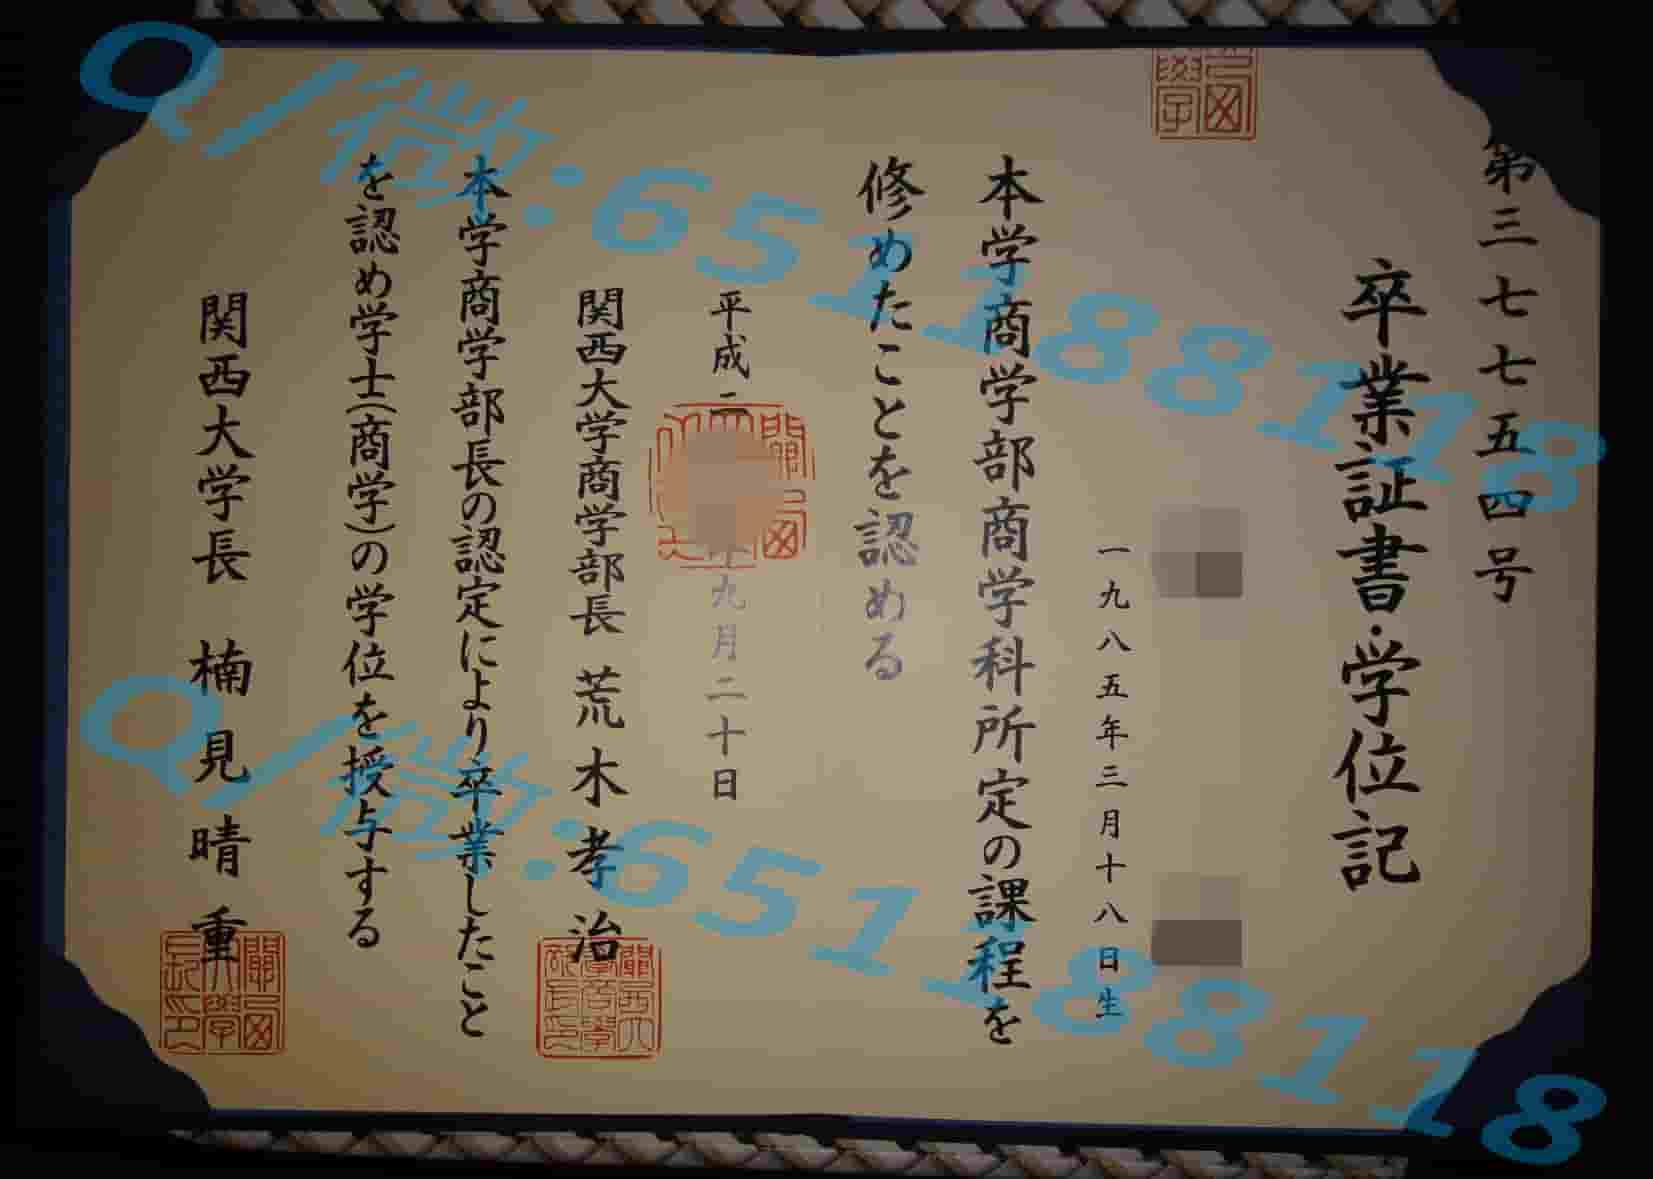 第三七七五四号
卒業証書・学位記
一九八五年三月十八日生
本学商学部商学科所定の課程を
修めたことを認める
平成二
年九月二十日
関西大学商学部長 荒木孝治
本学商学部長の認定により卒業したこと
を認め学士(商学)の学位を授与する
関西大学長 楠見晴重
Q/微:651188118
Q/微:651188118